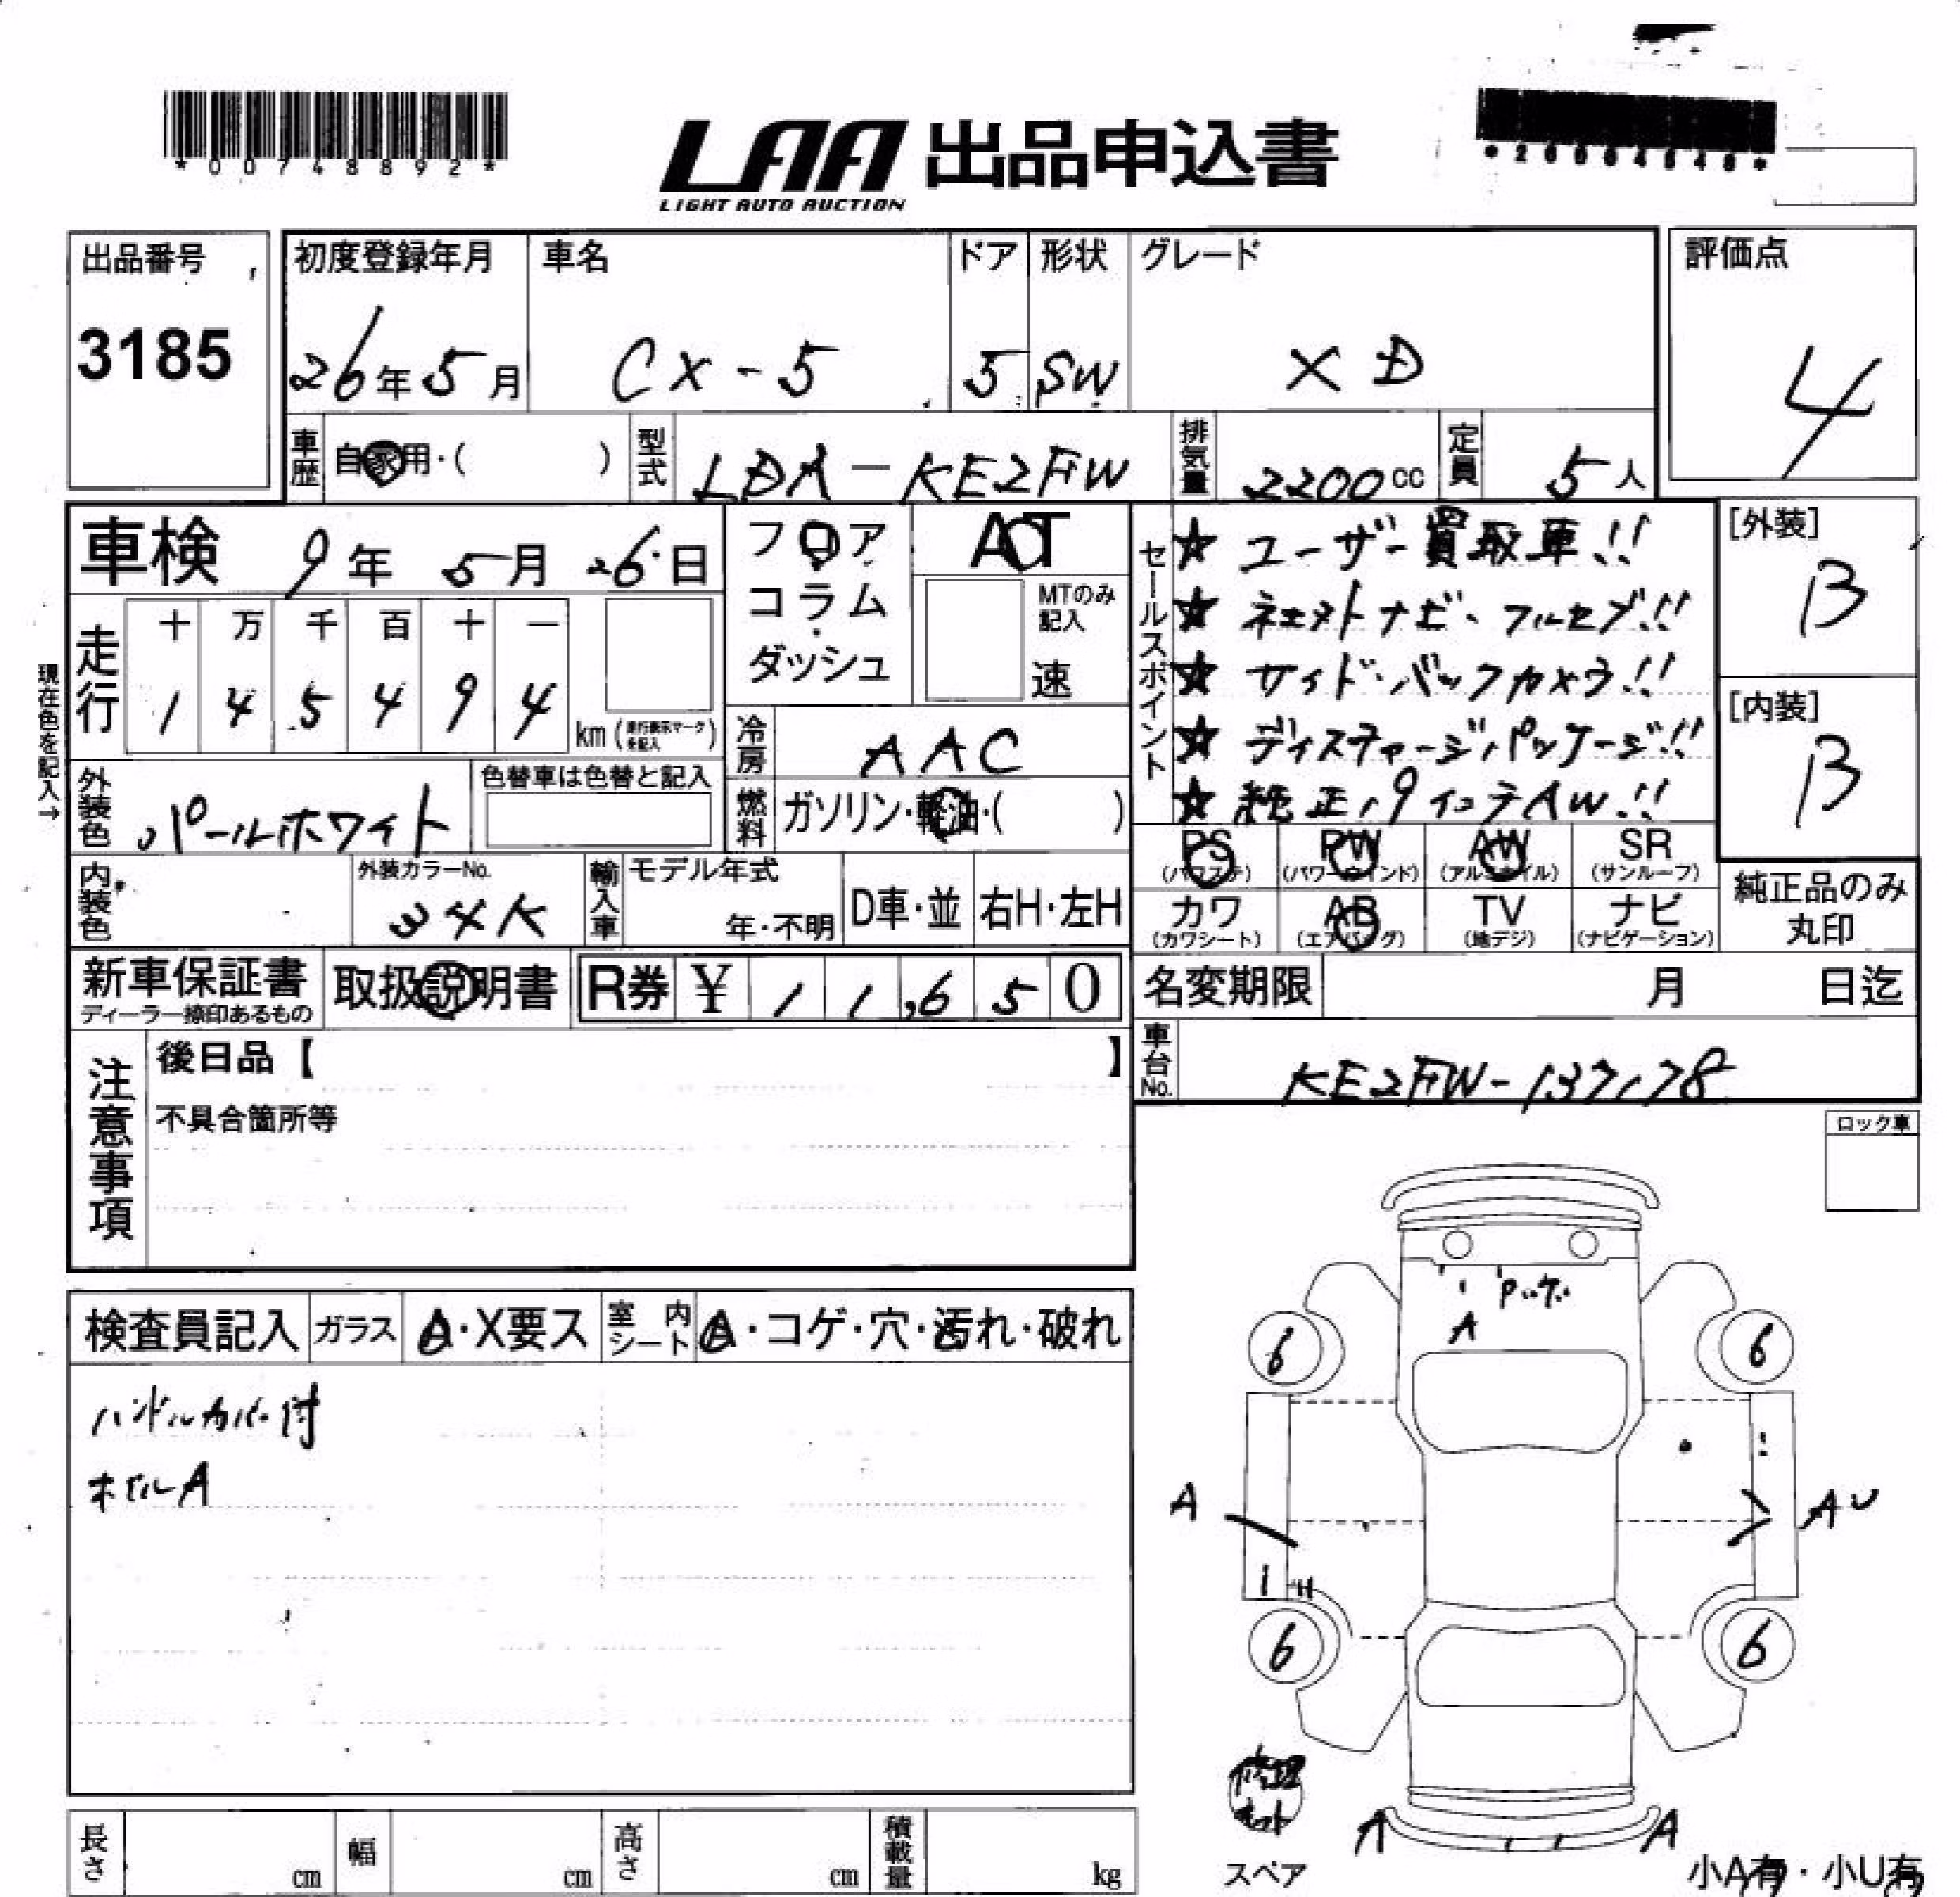 *00748892*
LAA 出品申込書
LIGHT AUTO AUCTION
出品番号
3185
初度登録年月
26年5月
車名
CX-5
ドア
5
形状
SW
グレード
XD
評価点
4
車歴
自家用・( )
型式
LDA-KE2FW
排気量
2200cc
定員
5人
車検 9年 5月 26日
フロア
コラム
・
ダッシュ
AT
MTのみ
記入
速
セールスポイント
★ ユーザー買取車!!
★ ネェストナビ・フルセグ!!
★ サイド・バックカメラ!!
★ ディスチャージパッケージ!!
★ 純正19インチAW!!
[外装]
B
[内装]
B
現在色を記入→
走行
十 万 千 百 十 一
1 4 5 4 9 4
km (走行表示マークを記入)
冷房
AAC
外装色
パールホワイト
色替車は色替と記入
燃料
ガソリン・軽油・( )
PS
(パワステ)
PW
(パワーウインド)
AW
(アルミホイル)
SR
(サンルーフ)
カワ
(カワシート)
AB
(エアバッグ)
TV
(地デジ)
ナビ
(ナビゲーション)
純正品のみ
丸印
内装色
外装カラーNo.
34K
輸入車
モデル年式
年・不明
D車・並
右H・左H
新車保証書
ディーラー捺印あるもの
取扱説明書
R券 ¥ 11,650
名変期限 月 日迄
車台No.
KE2FW-137178
注意事項
後日品【 】
不具合箇所等
ロック車
検査員記入
ガラス
A・X要ス
室内シート
A・コゲ・穴・汚れ・破れ
ハンドルカバー付
ホイルA
A
6
6
A
AU
6
6
修理
キット
スペア
A
A
小A有・小U有
長さ cm
幅 cm
高さ cm
積載量 kg